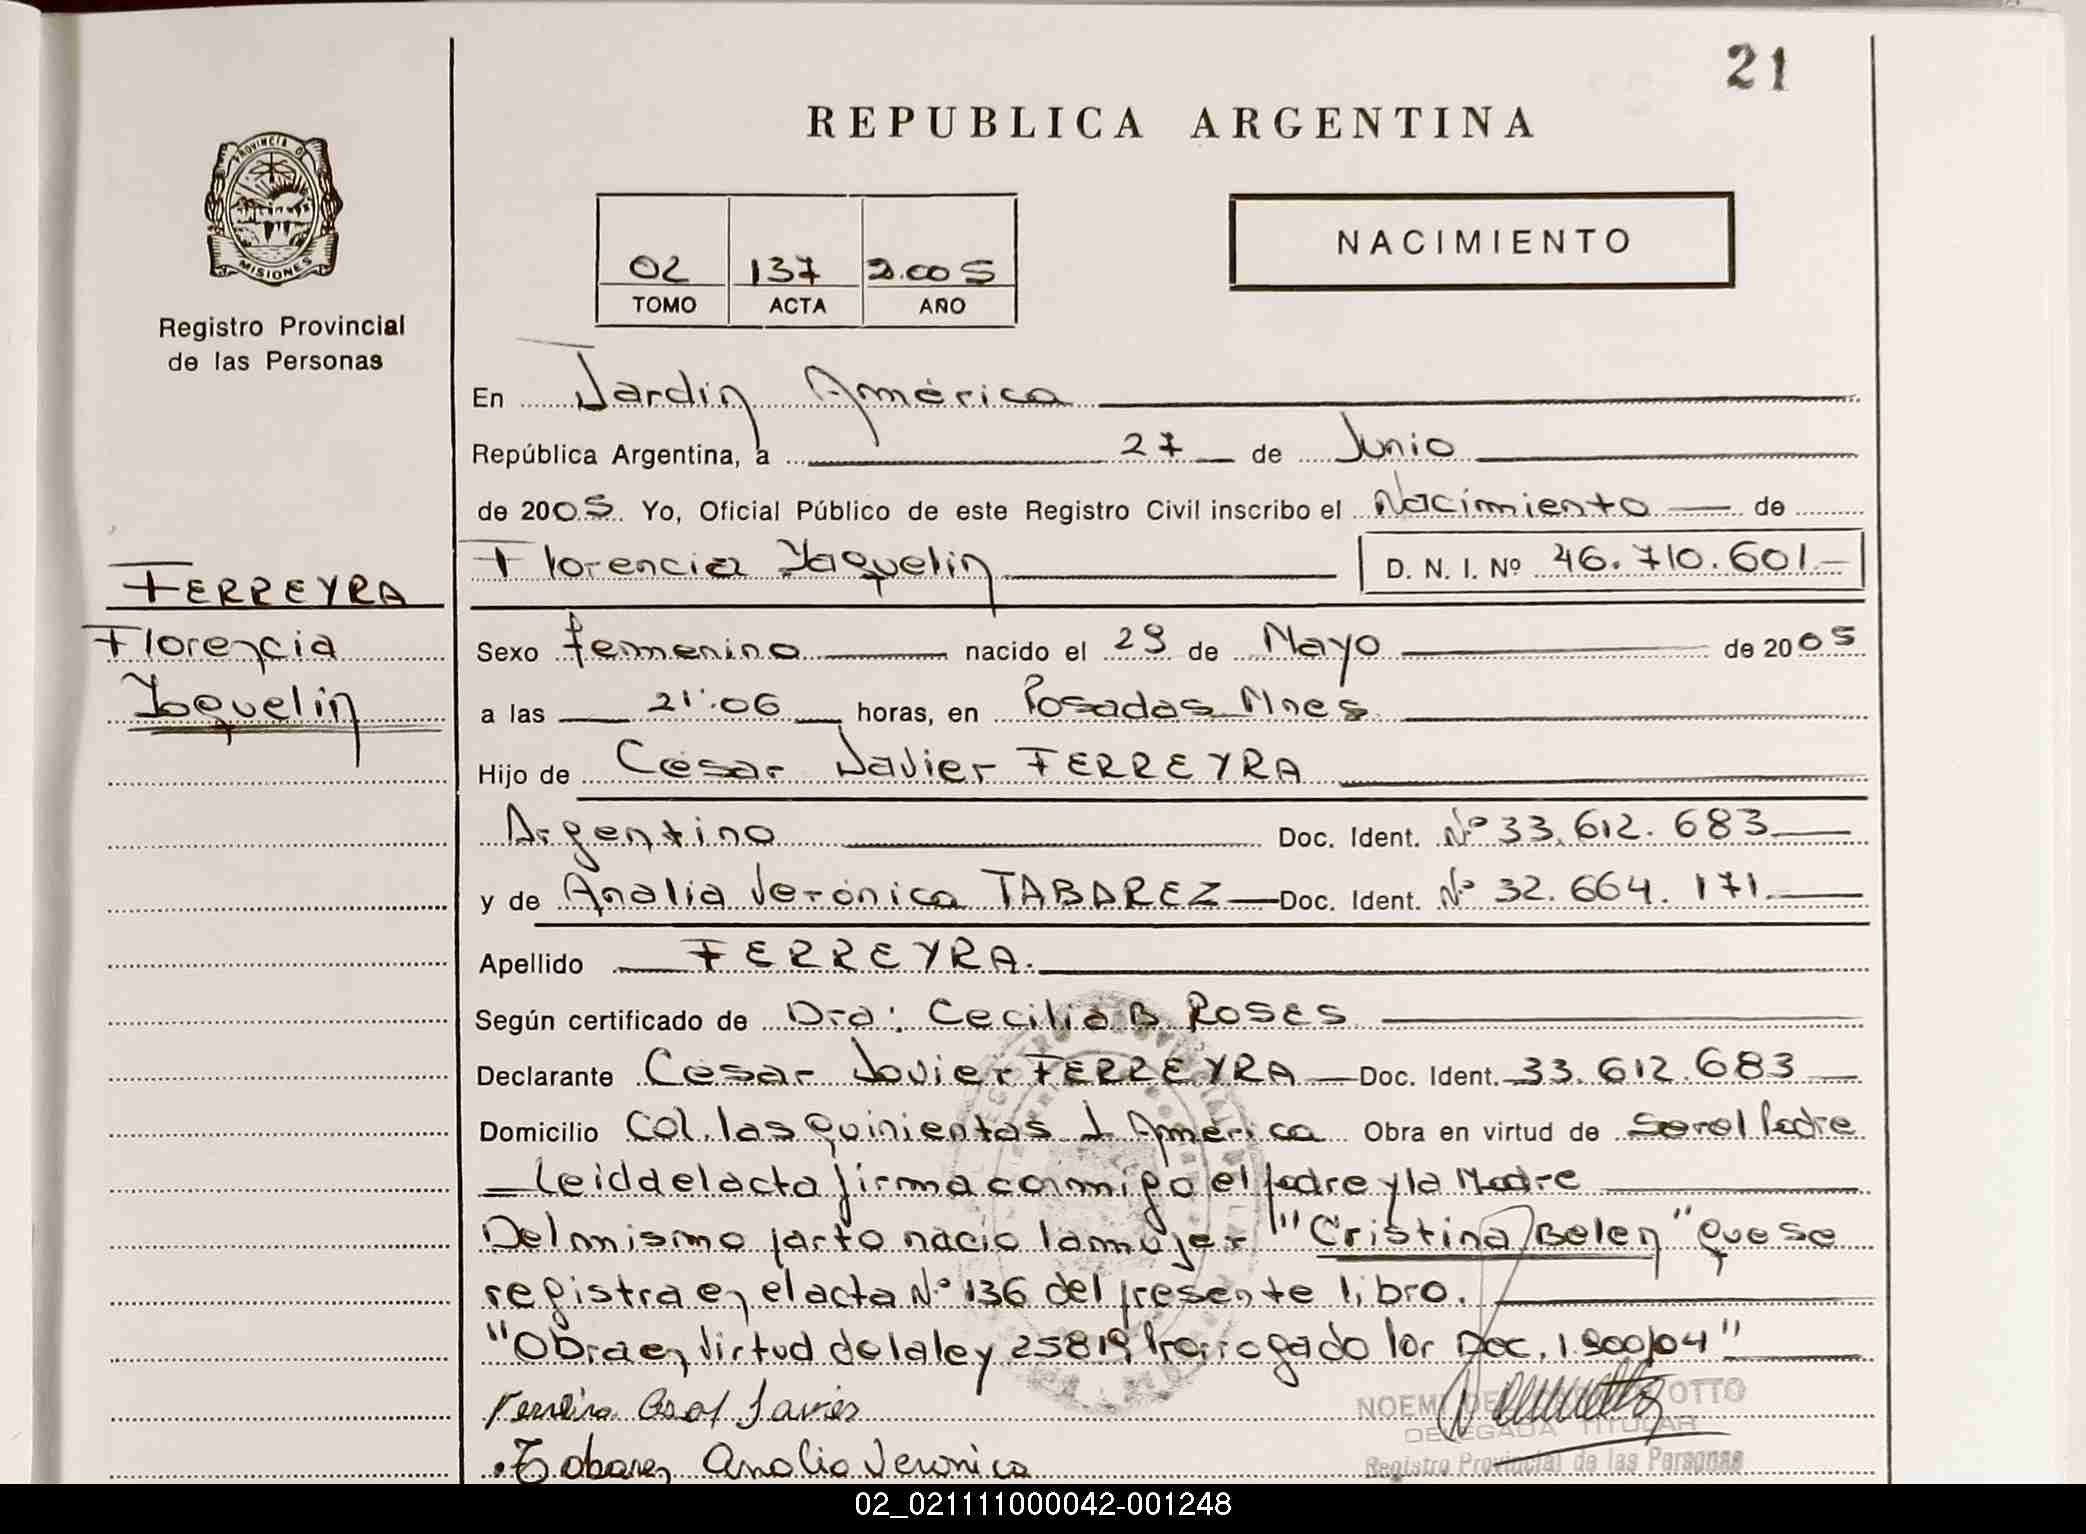 21
REPUBLICA ARGENTINA
PROVINCIA DE
MISIONES
Registro Provincial
de las Personas
02 137 2.005
TOMO ACTA AÑO
NACIMIENTO
En Jardin América
República Argentina, a 27 de Junio
de 2005 Yo, Oficial Público de este Registro Civil inscribo el Nacimiento de
Florencia Yaquelin D. N. I. Nº 46.710.601
FERREYRA
Florencia
Yaquelin
Sexo femenino nacido el 29 de Mayo de 2005
a las 21:06 horas, en Posadas Mnes
Hijo de César Javier FERREYRA
Argentino Doc. Ident. Nº 33.612.683
y de Analia Verónica TABAREZ Doc. Ident. Nº 32.664.171
Apellido FERREYRA.
Según certificado de Dra: Cecilia B. ROSES
Declarante César Javier FERREYRA Doc. Ident. 33.612.683
Domicilio Col. las quinientas J. América Obra en virtud de ser el Padre
Leida el acta firma conmigo el Padre y la Madre
Del mismo parto nacio la mujer "Cristina Belen" que se
registra en el acta Nº 136 del presente libro.
"Obra en Virtud de la ley 25819 Prorrogado Por Dec. 1.900/04"
Javier
Analia Veronica
NOEMI OTTO
DELEGADA TITULAR
Registro Provincial de las Personas
02_021111000042-001248